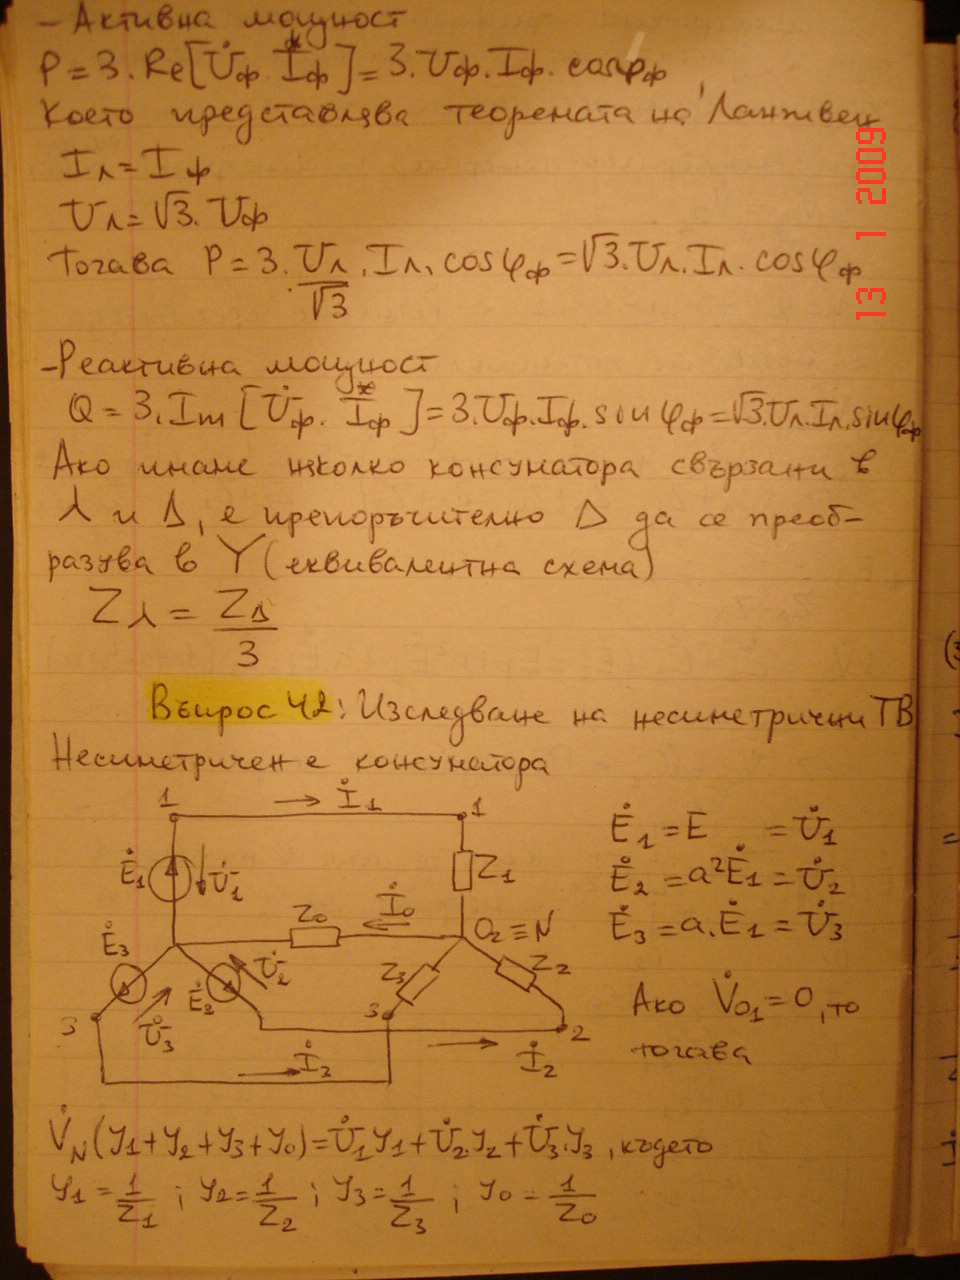 - Активна мощност
P = 3.Re[U̇ф.İ*ф] = 3.Uф.Iф.cosφф
Което представлява теоремата на Ланжвен
Iл = Iф
Uл = √3.Uф
Тогава P = 3.Uл/√3.Iл.cosφф = √3.Uл.Iл.cosφф
13 1 2009
- Реактивна мощност
Q = 3.Im[U̇ф.İ*ф] = 3.Uф.Iф.sinφф = √3.Uл.Iл.sinφф
Ако имаме няколко консуматора свързани в
⅄ и Δ, е препоръчително Δ да се преоб-
разува в Y (еквивалентна схема)
Z⅄ = ZΔ/3
Въпрос 42: Изследване на несиметрични ТВ
Несиметричен е консуматора
1 İ1 1
Ė1 U̇1 Z1
Ė1 = E = U̇1
Ė2 = a²Ė1 = U̇2
Ė3 = a.Ė1 = U̇3
Z0 İ0 O2 ≡ N
Ė3 Ė2 U̇2 Z3 Z2
3 U̇3 3 2
İ3 İ2
Ако V̇01 = 0, то
тогава
V̇N(Y1+Y2+Y3+Y0) = U̇1Y1 + U̇2.Y2 + U̇3.Y3, където
Y1 = 1/Z1 ; Y2 = 1/Z2 ; Y3 = 1/Z3 ; Y0 = 1/Z0